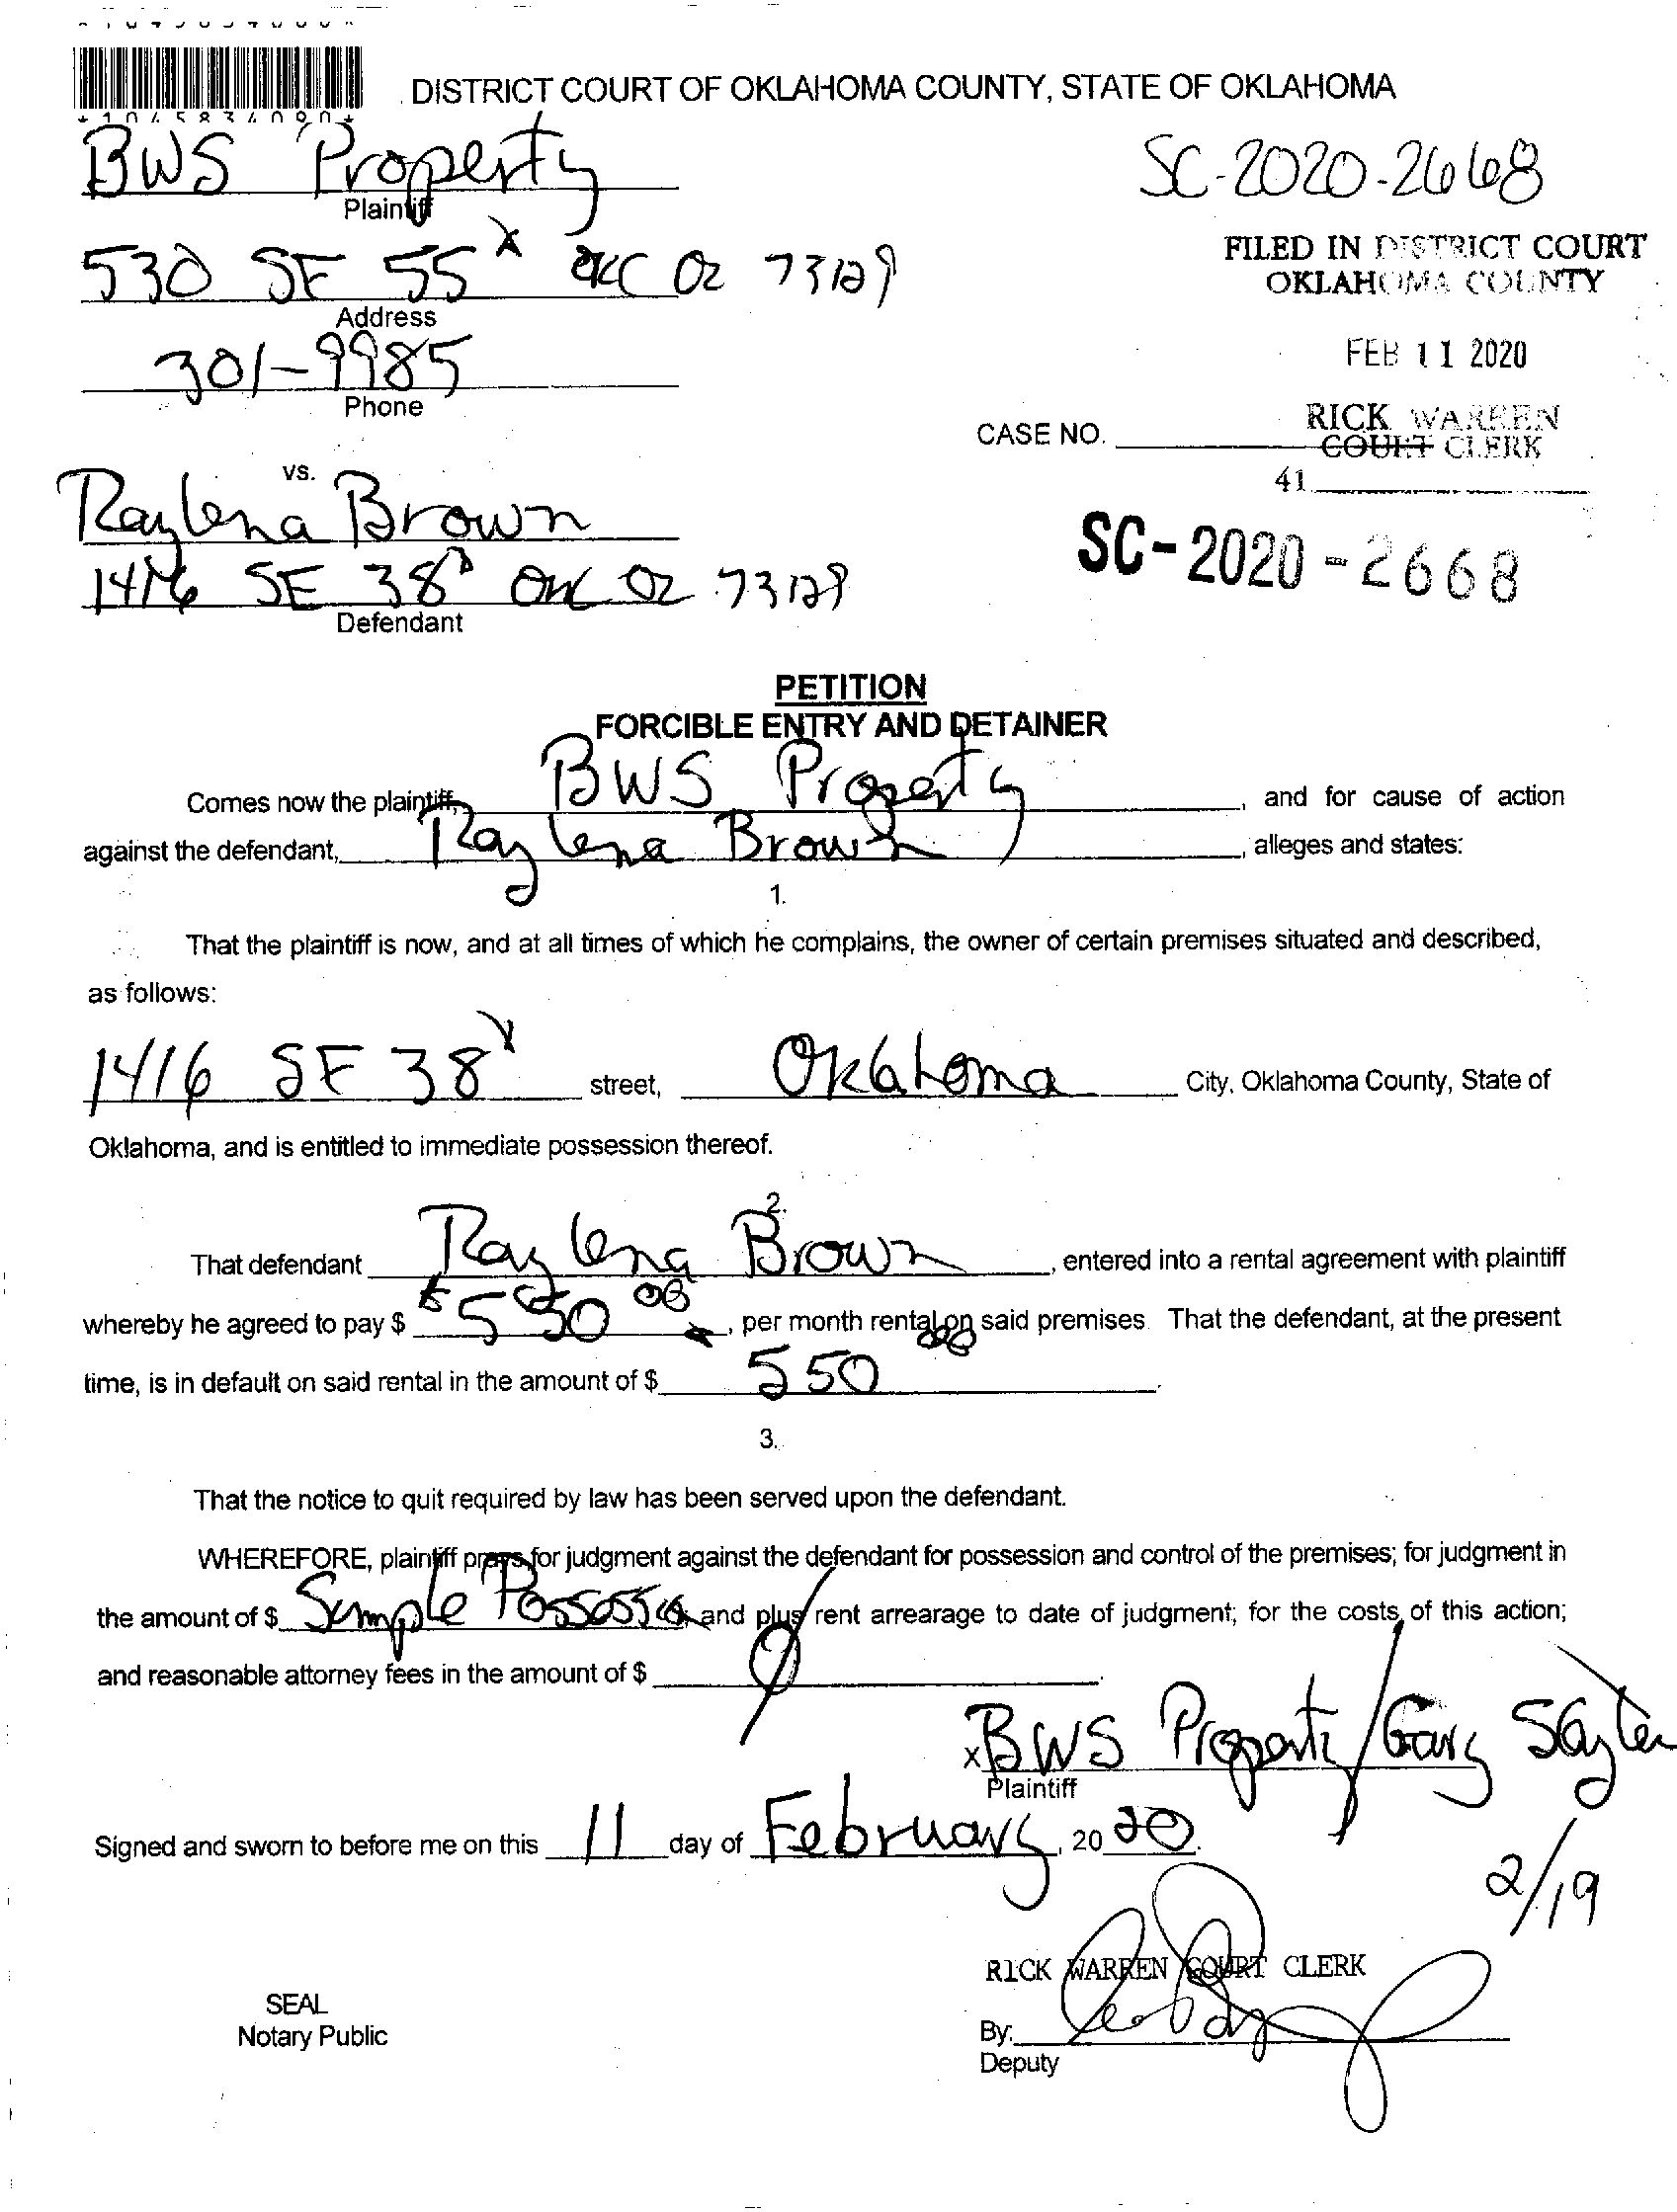 DISTRICT COURT OF OKLAHOMA COUNTY, STATE OF OKLAHOMA
*1045834090*
BWS Property
Plaintiff
SC-2020-2668
530 SE 55 OKC 73129
Address
FILED IN DISTRICT COURT
OKLAHOMA COUNTY
301-9985
Phone
FEB 11 2020
RICK WARREN
COURT CLERK
CASE NO.
41
vs.
Raylena Brown
SC-2020-2668
1416 SE 38 73129
Defendant
PETITION
FORCIBLE ENTRY AND DETAINER
Comes now the plaintiff, BWS Property, and for cause of action
against the defendant, Raylena Brown, alleges and states:
1.
That the plaintiff is now, and at all times of which he complains, the owner of certain premises situated and described,
as follows:
1416 SE 38 street, Oklahoma City, Oklahoma County, State of
Oklahoma, and is entitled to immediate possession thereof.
2.
That defendant Raylena Brown, entered into a rental agreement with plaintiff
whereby he agreed to pay $ $550 00, per month rental on said premises. That the defendant, at the present
time, is in default on said rental in the amount of $ 550 00.
3.
That the notice to quit required by law has been served upon the defendant.
WHEREFORE, plaintiff prays for judgment against the defendant for possession and control of the premises; for judgment in
the amount of $ Simple and plus rent arrearage to date of judgment; for the costs of this action;
and reasonable attorney fees in the amount of $
x BWS Property/Gary Slayter
Plaintiff
Signed and sworn to before me on this 11 day of February, 2020.
2/19
RICK WARREN COURT CLERK
SEAL
Notary Public
By:
Deputy